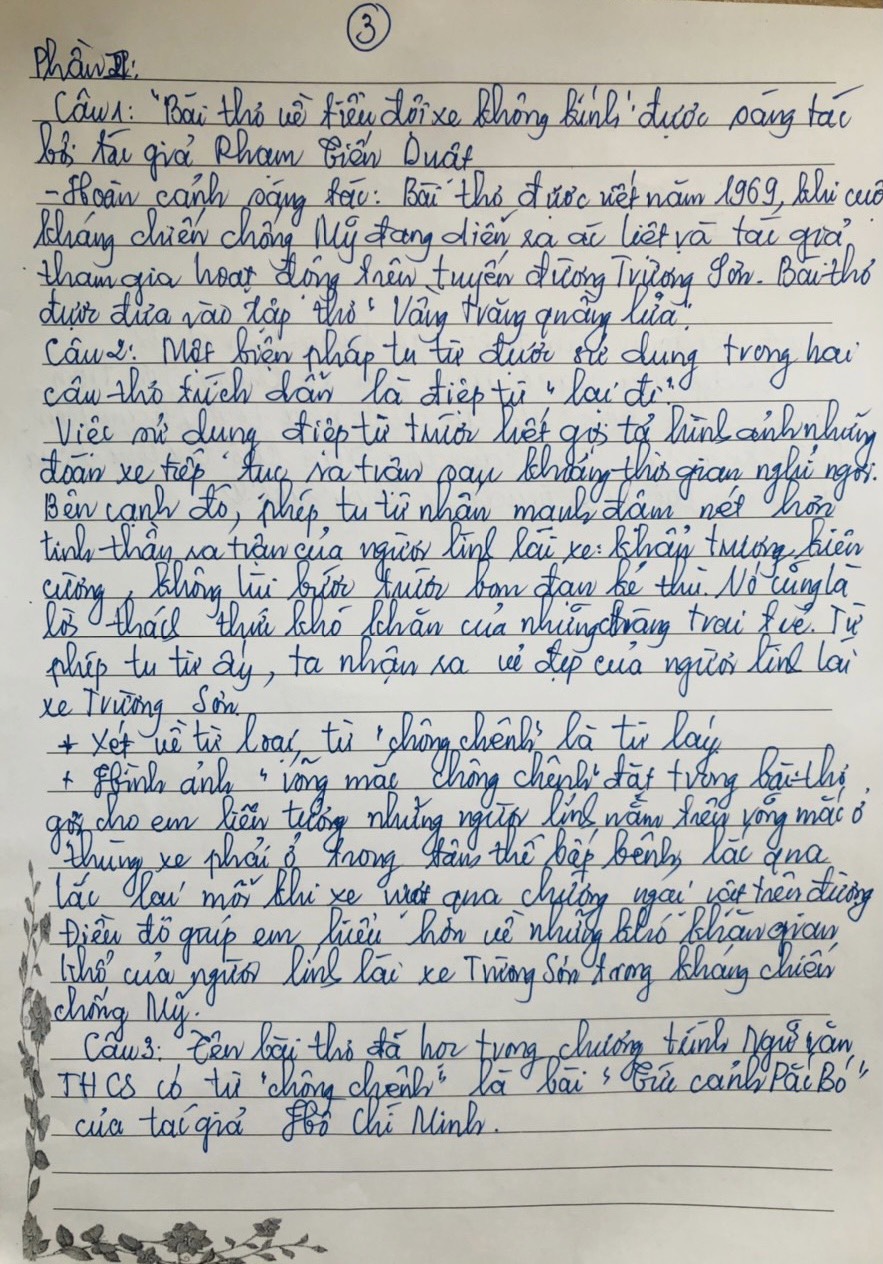 3
Phần II:
Câu 1: "Bài thơ về tiểu đội xe không kính" được sáng tác
bởi tác giả Phạm Tiến Duật
- Hoàn cảnh sáng tác: Bài thơ được viết năm 1969, khi cuộ
kháng chiến chống Mỹ đang diễn ra ác liệt và tác giả
tham gia hoạt động trên tuyến đường Trường Sơn. Bài thơ
được đưa vào tập thơ "Vầng trăng quầng lửa".
Câu 2: Một biện pháp tu từ được sử dụng trong hai
câu thơ trích dẫn là điệp từ "lại đi"
Việc sử dụng điệp từ trước hết gợi tả hình ảnh những
đoàn xe tiếp tục ra trận sau khoảng thời gian nghỉ ngơi.
Bên cạnh đó, phép tu từ nhấn mạnh đậm nét hơn
tinh thần ra trận của người lính lái xe: khẩn trương, kiên
cường, không lùi bước trước bom đạn kẻ thù. Nó cũng là
lời thách thức khó khăn của những chàng trai trẻ. Từ
phép tu từ ấy, ta nhận ra vẻ đẹp của người lính lái
xe Trường Sơn.
+ Xét về từ loại, từ "chông chênh" là từ láy
+ Hình ảnh "võng mắc chông chênh" đặt trong bài thơ
gợi cho em liên tưởng những người lính nằm trên võng mắc ở
thùng xe phải ở trong tâm thế bấp bênh, lắc qua
lắc lại mỗi khi xe vượt qua chướng ngại vật trên đường
Điều đó giúp em hiểu hơn về những khó khăn gian
khổ của người lính lái xe Trường Sơn trong kháng chiến
chống Mỹ.
Câu 3: Tên bài thơ đã học trong chương trình Ngữ văn
THCS có từ "chông chênh" là bài "Tức cảnh Pác Bó"
của tác giả Hồ Chí Minh.